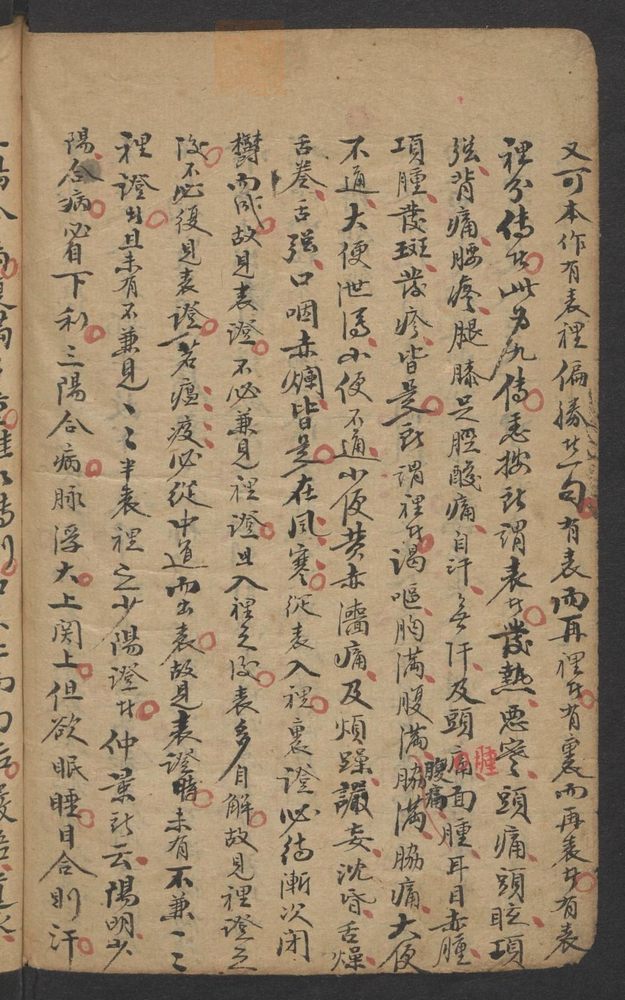 又可本作有表裡偏勝者一句有表而再裡者有裏而再表者有表
裡分傳者此為九傳悉按所謂表者發熱惡寒頭痛頭眩項
強背痛腰疼腿膝足脛酸痛自汗無汗及頭痛面腫耳目赤腫
項腫發斑發疹皆是所謂裡者渴嘔胸滿腹滿腹痛脇滿脇痛大便
不通大便泄瀉小便不通小便黃赤濇痛及煩躁讝妄沈昏舌燥
舌卷舌強口咽赤爛皆是在風寒從表入裡裏證必待漸次閉
鬱而成故見表證不必兼見裡證且入裡之後表多自解故見裡證之
後不必復見表證若瘟疫必從中道而出表故見表證時未有不兼〻
裡證者且未有不兼見〻〻半表裡之少陽證者仲景所云陽明少
陽合病必自下利三陽合病脉浮大上関上但欲眠睡目合則汗